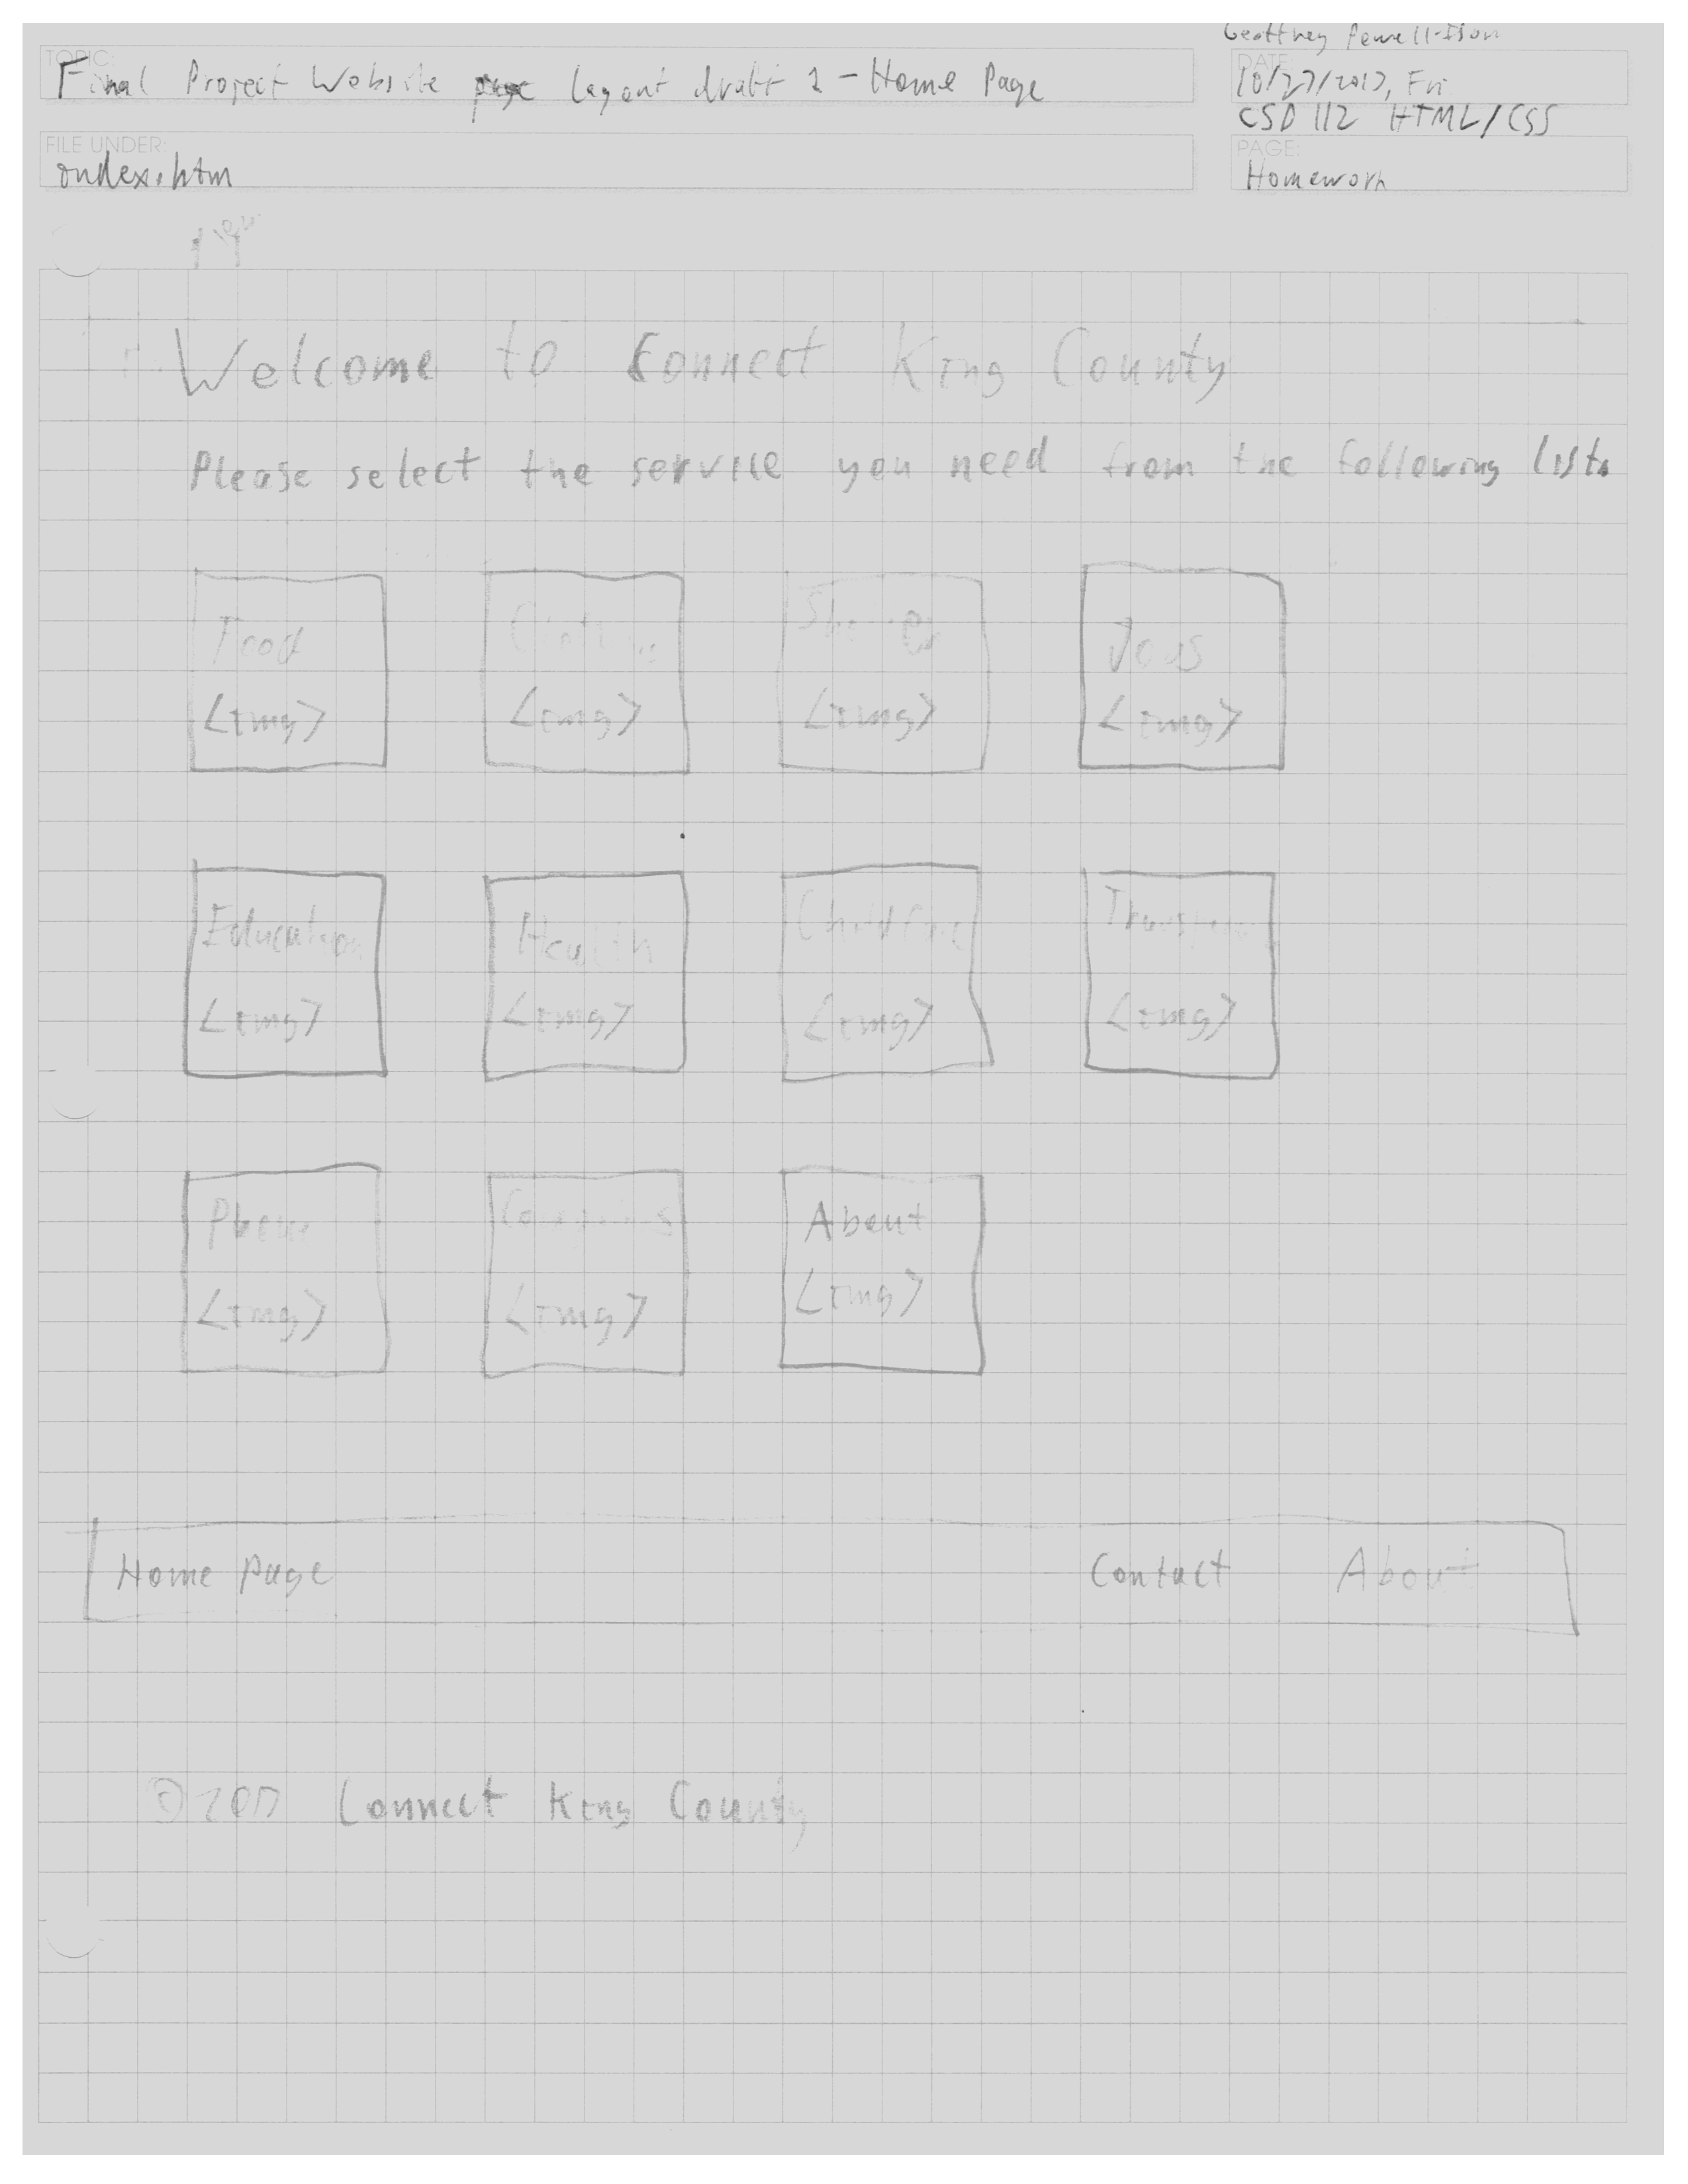 Geoffrey Powell-Ison
TOPIC:
Final Project Website page layout draft 1 - Home Page
DATE:
10/27/2017, Fri
CSD 112 HTML/CSS
FILE UNDER:
index.htm
PAGE:
Homework
Welcome to Connect King County
Please select the service you need from the following list.
Food Jobs
<img> <img> <img> <img>
Education Health Childcare
<img> <img> <img> <img>
Phone About
<img> <img> <img>
Home page Contact About
©2017 Connect King County